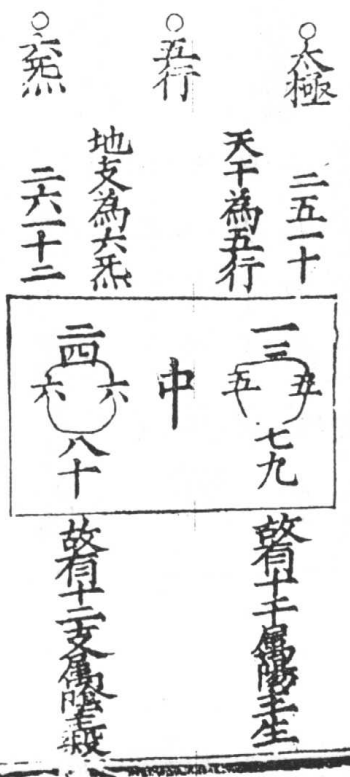 ○太極
二五一十
天干為五行
○五行
地支為六炁
○六炁
二六一十二
一三
五 五
七九
中
二四
六 六
八十
故有十干屬陽主生
故有十二支屬陰主殺